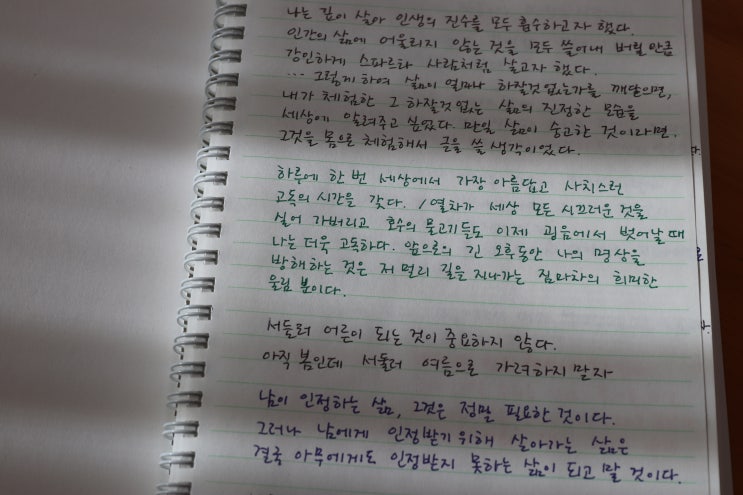 나는 깊이 살아 인생의 진수를 모두 흡수하고자 했다.
인간의 삶에 어울리지 않는 것을 모두 쓸어내 버릴만큼
강인하게 스파르타 사람처럼 살고자 했다.
… 그렇게 하여 삶이 얼마나 하잘것없는가를 깨달으면,
내가 체험한 그 하잘것없는 삶의 진정한 모습을
세상에 알려주고 싶었다. 만일 삶이 숭고한 것이라면,
그것을 몸으로 체험해서 글을 쓸 생각이었다.
하루에 한 번 세상에서 가장 아름답고 사치스런
고독의 시간을 갖다. / 열차가 세상 모든 시끄러운 것을
실어 가버리고 호수의 물고기들도 이제 굉음에서 벗어날 때
나는 더욱 고독하다. 앞으로의 긴 오후동안 나의 명상을
방해하는 것은 저 멀리 길을 지나가는 짐마차의 희미한
울림 뿐이다.
서둘러 어른이 되는 것이 중요하지 않다.
아직 봄인데 서둘러 여름으로 가려하지 말자
남이 인정하는 삶, 그것은 정말 필요한 것이다.
그러나 남에게 인정받기 위해 살아가는 삶은
결국 아무에게도 인정받지 못하는 삶이 되고 말 것이다.